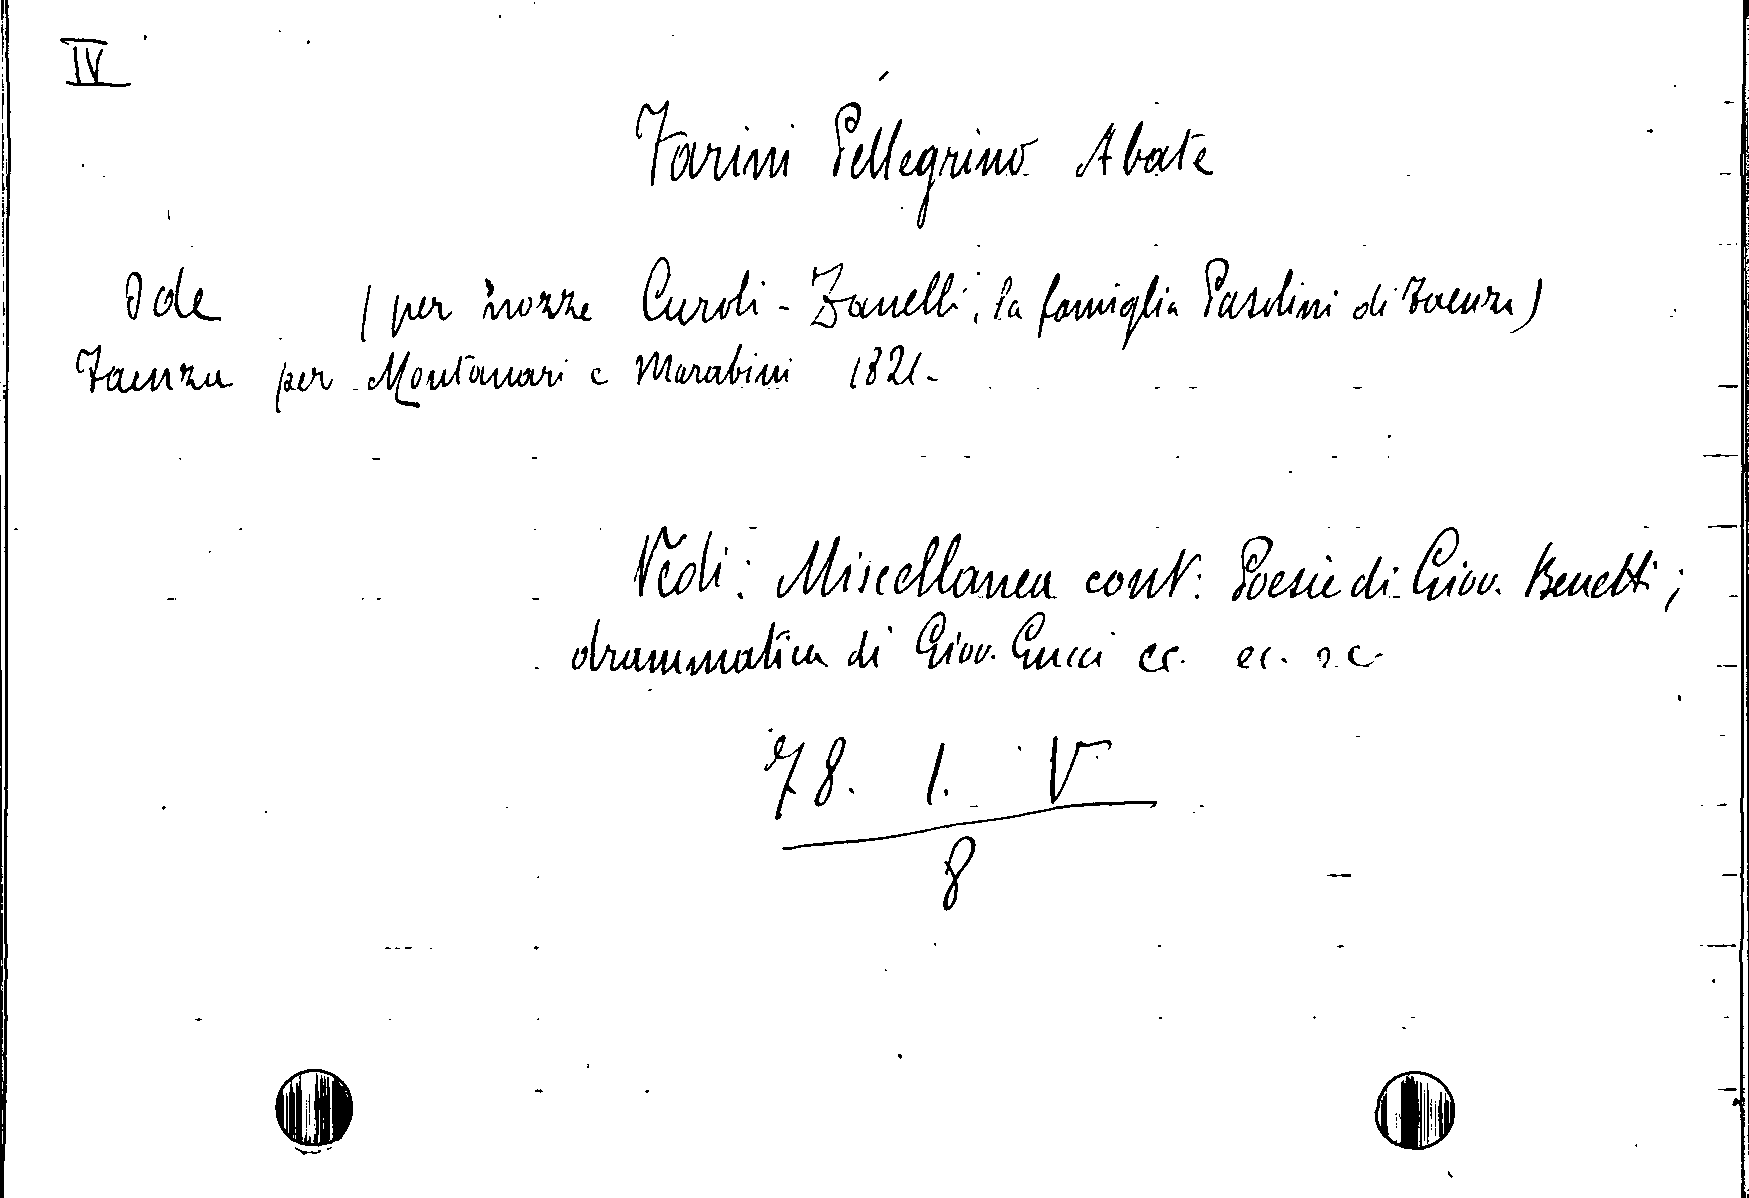 IV
Farini Pellegrino Abate
Ode (per nozze Caroli - Zanelli, la famiglia Pasolini di Faenza)
Faenza per Montanari e Marabini 1821.
Vedi: Miscellanea cont: Poesie di Giov. Benetti;
drammatica di Giov. Gucci ec. ec. ec.
78. 1. V
8